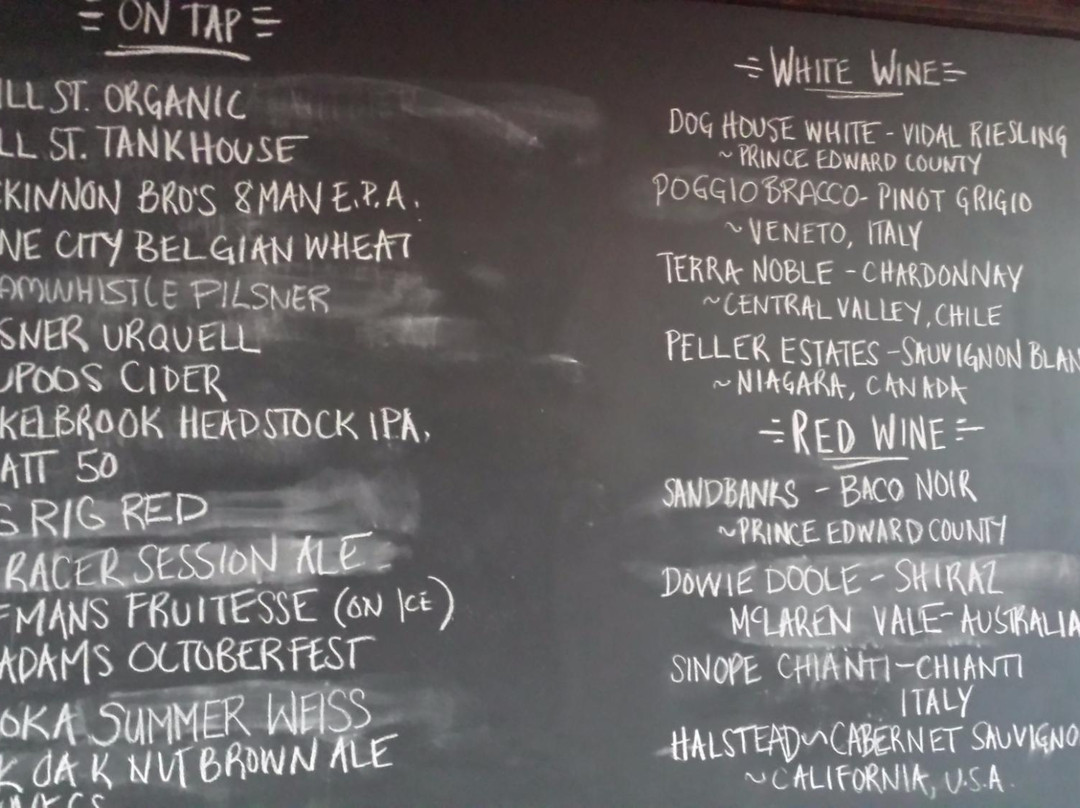 ON TAP
ILL ST. ORGANIC
LL ST. TANKHOUSE
KINNON BRO'S 8 MAN E.P.A.
NE CITY BELGIAN WHEAT
AMWHISTLE PILSNER
SNER URQUELL
UPOOS CIDER
KELBROOK HEADSTOCK IPA.
ATT 50
S RIG RED
RACER SESSION ALE
FMANS FRUITESSE (ON ICE)
ADAMS OCTOBERFEST
OKA SUMMER WEISS
K OAK NUT BROWN ALE
WHITE WINE
DOG HOUSE WHITE - VIDAL RIESLING
~ PRINCE EDWARD COUNTY
POGGIO BRACCO - PINOT GRIGIO
~ VENETO, ITALY
TERRA NOBLE - CHARDONNAY
~ CENTRAL VALLEY, CHILE
PELLER ESTATES - SAUVIGNON BLAN
~ NIAGARA, CANADA
RED WINE
SANDBANKS - BACO NOIR
~ PRINCE EDWARD COUNTY
DOWIE DOOLE - SHIRAZ
McLAREN VALE - AUSTRALIA
SINOPE CHIANTI - CHIANTI
ITALY
HALSTEAD ~ CABERNET SAUVIGNO
~ CALIFORNIA, U.S.A.